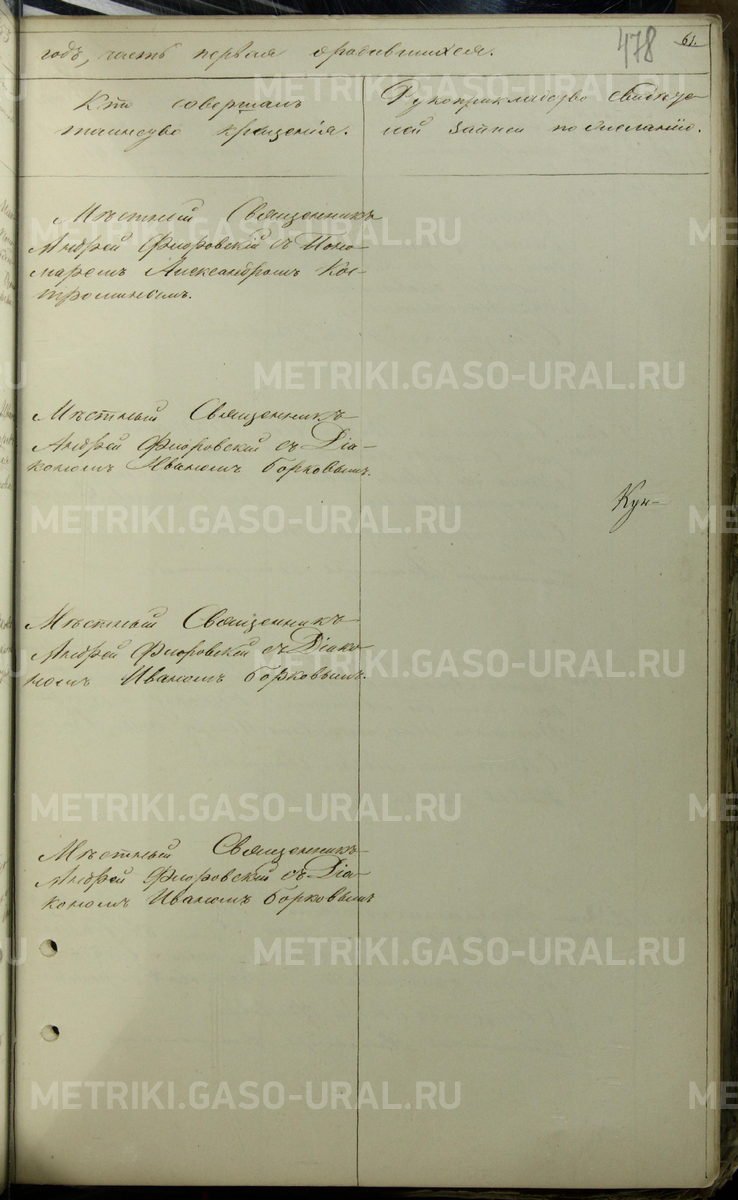 годъ, часть первая о родившихся.
478
61.
Кто совершалъ
таинство крещенія.
Рукоприкладство свидѣте-
лей записи по желанію.
Мѣстный Священникъ
Андрей Флоровскій съ Поно-
маремъ Александромъ Кос-
троминымъ.
Мѣстный Священникъ
Андрей Флоровскій съ Діа-
кономъ Иваномъ Борковымъ.
Кун-
Мѣстный Священникъ
Андрей Флоровскій съ Діако-
номъ Иваномъ Борковымъ.
Мѣстный Священникъ
Андрей Флоровскій съ Діа-
кономъ Иваномъ Борковымъ
METRIKI.GASO-URAL.RU